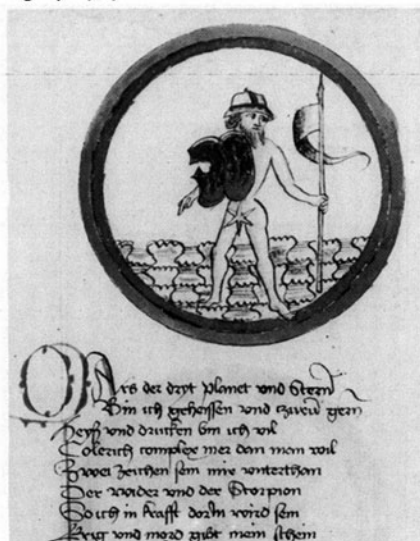 Mars der dryt planet vnd Stern
Bin ich geheissen vnd gern
Heyß vnd drucken bin ich vil
Colerich complexe mer dan man wil
Zwei Zeichen sein mir vnterthan
Der wider vnd der Scorpion
So ich in krafft dorin wird sein
Krig vnd mord gibt mein schein